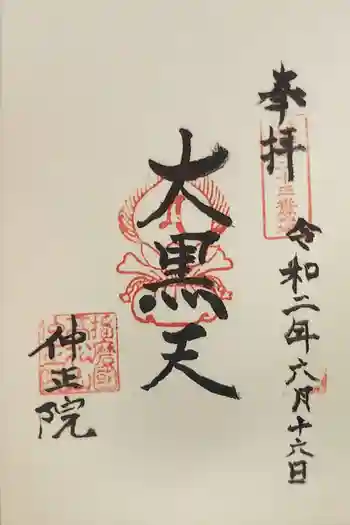 奉拝
令和二年六月十六日
大黒天
仲正院